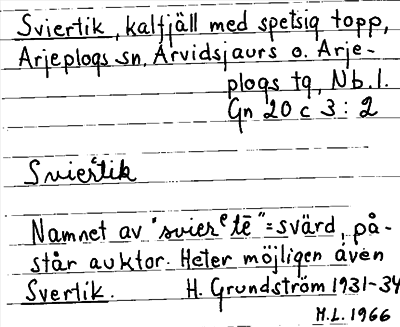 Sviertik, kalfjäll med spetsig topp,
Arjeplogs sn, Arvidsjaurs o. Arje-
plogs tg, Nb. l.
Gn 20 c 3 : 2
Sviertik
Namnet av "svierᵉtē" = svärd, på-
står auktor. Heter möjligen även
Svertik. H. Grundström 1931-34
H.L. 1966